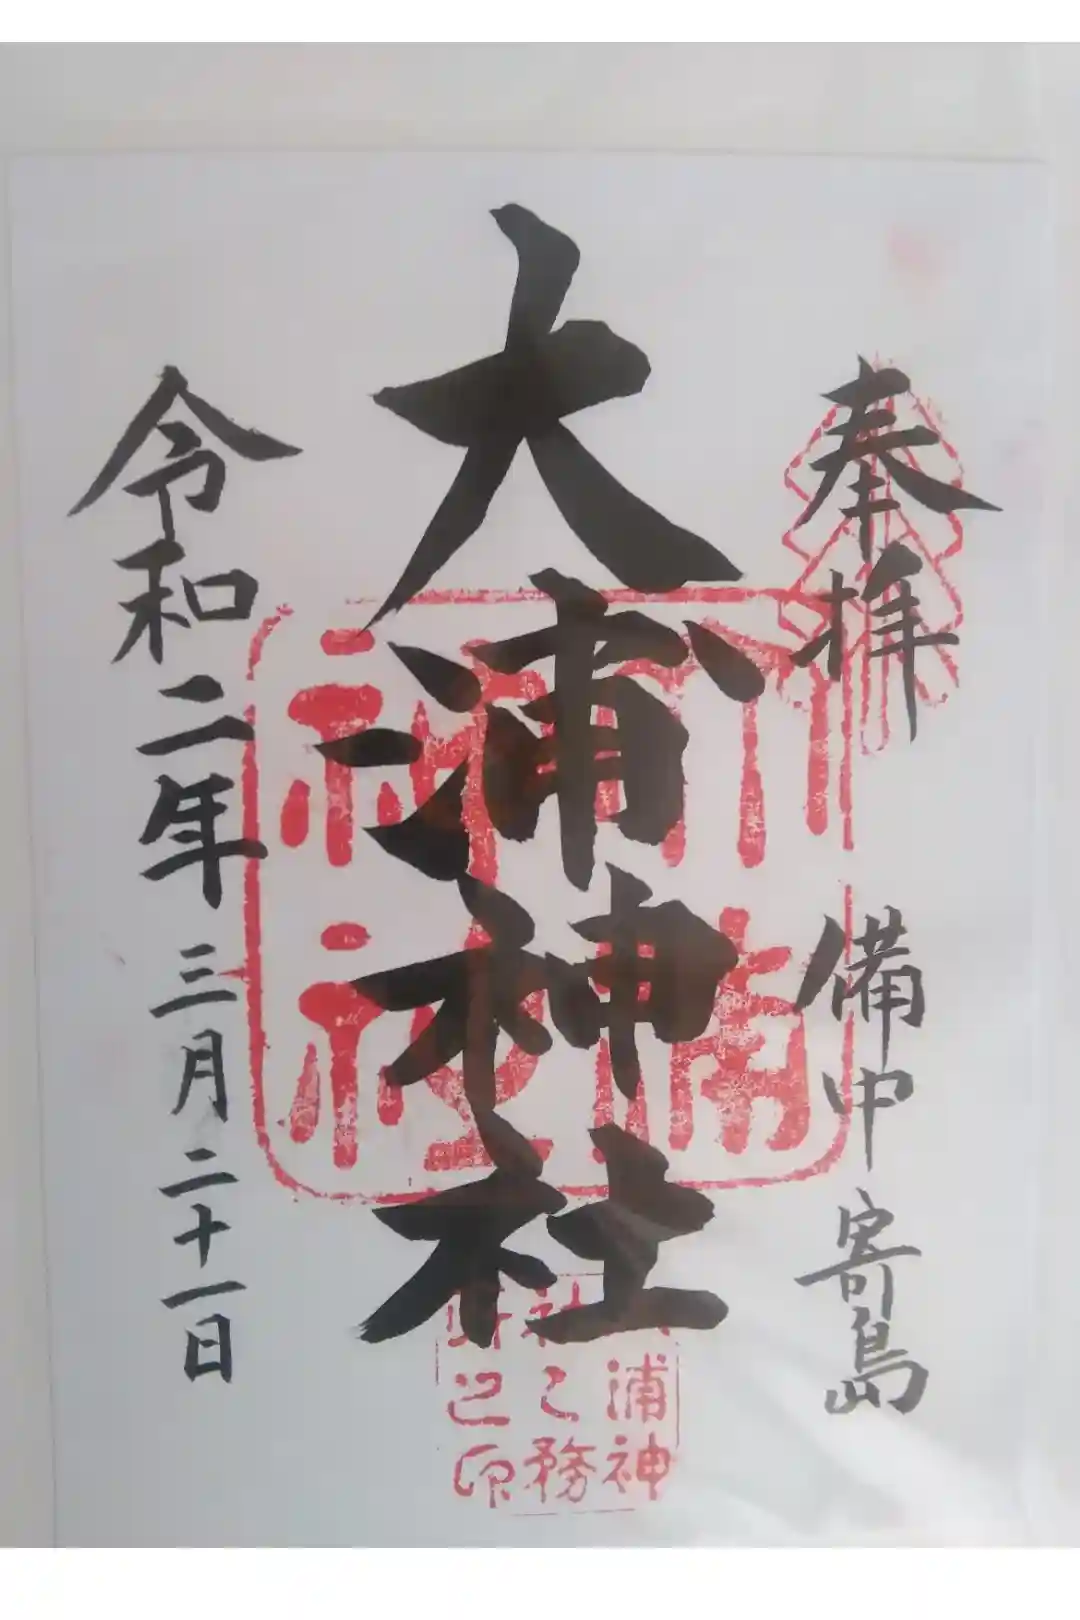 奉拝
備中 寄島
大浦神社
令和二年 三月二十一日
大浦
神社
大浦神
社之務
所之印